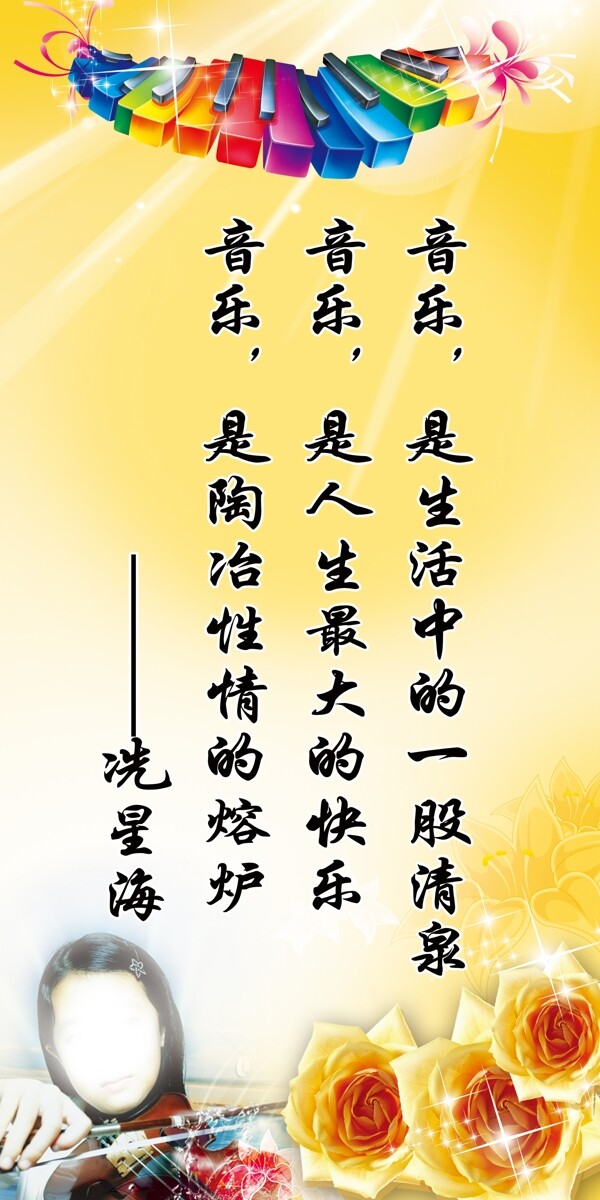 音乐，是生活中的一股清泉
音乐，是人生最大的快乐
音乐，是陶冶性情的熔炉
——冼星海